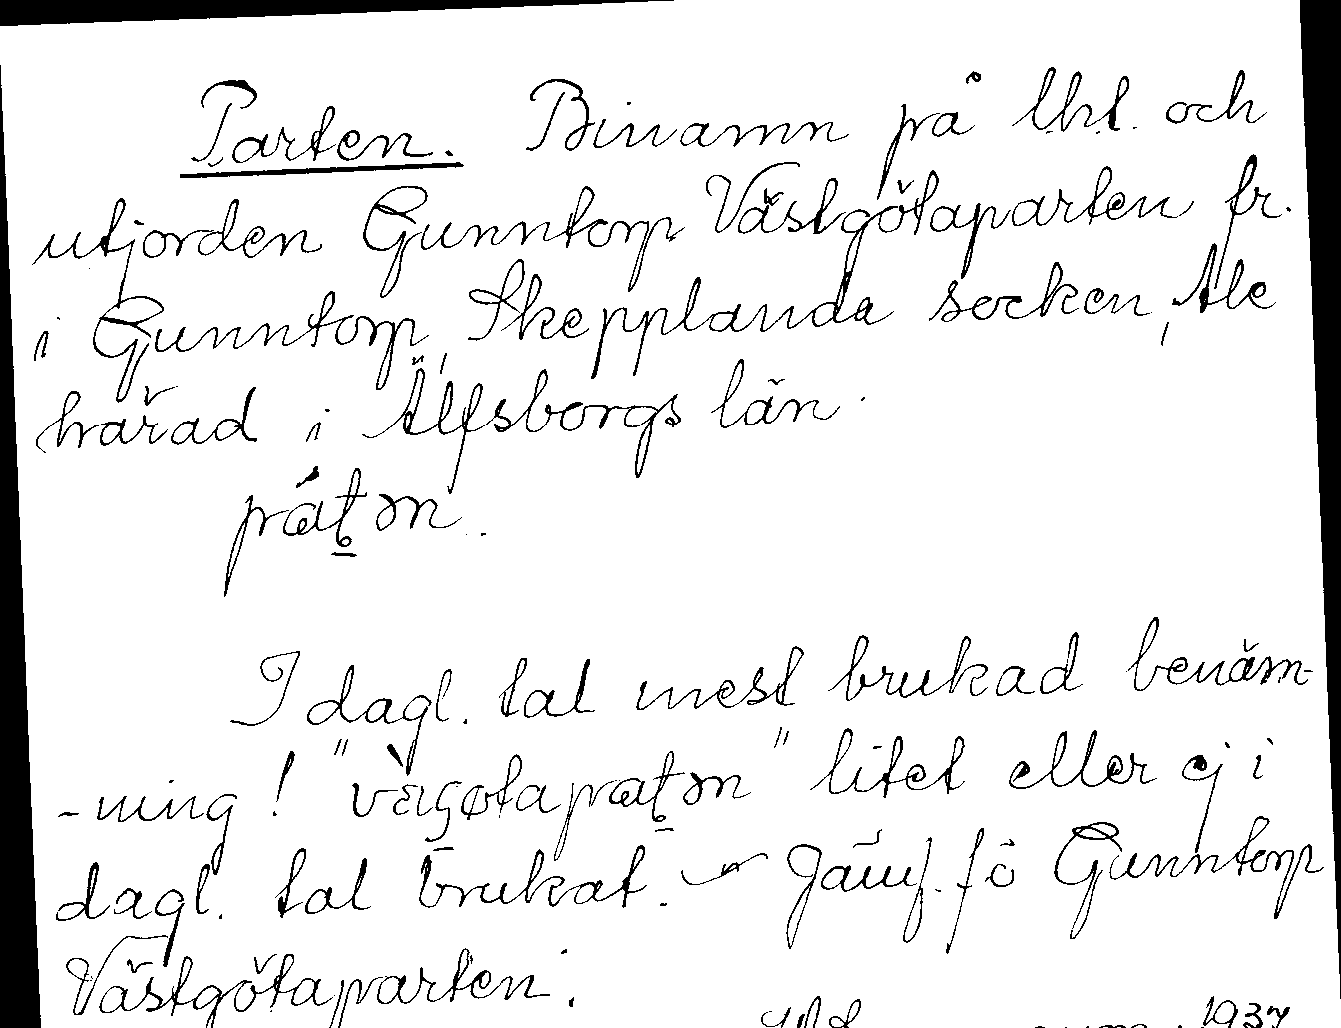 Parten. Binamn på lht. och
utjorden Gunntorp Västgötaparten fr.
i Gunntorp, Skepplanda socken, Ale
härad i Älfsborgs län.
I dagl. tal mest brukad benäm-
-ning! " " litet eller ej i
dagl. tal brukat. — Jämf. fö Gunntorp
Västgötaparten.
1937